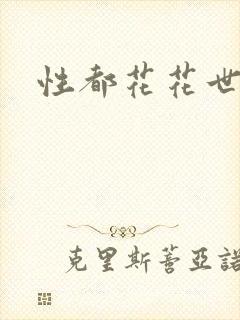 性都花花世
克里斯蒼亞諾